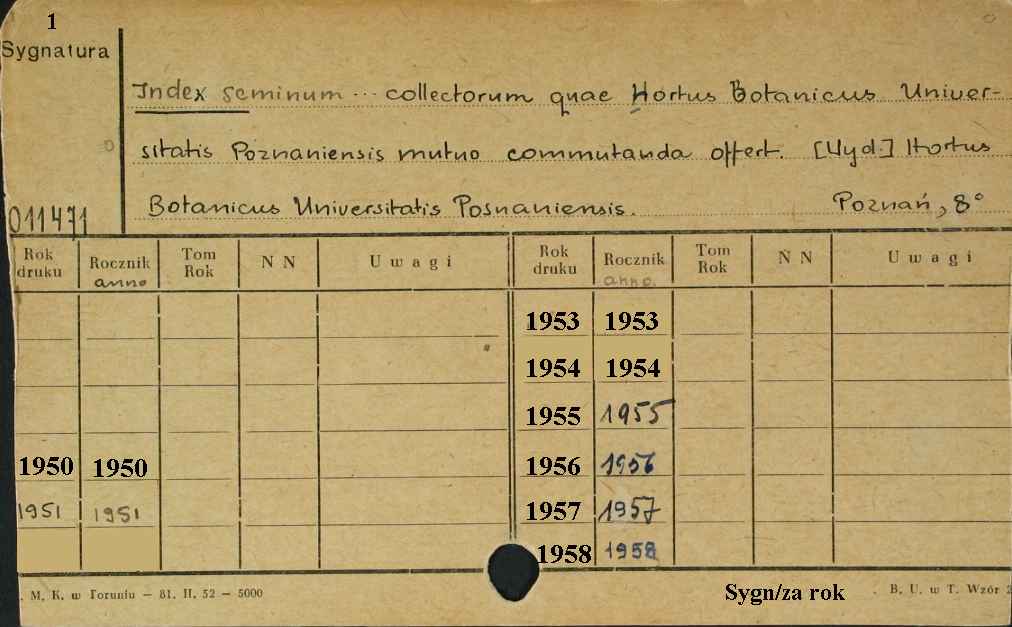 1
Sygnatura
Index seminum ... collectorum quae Hortus Botanicus Univer-
sitatis Poznaniensis mutuo commutanda offert. [Wyd.] Hortus
Botanicus Universitatis Posnaniensis. Poznań, 8°
011471
Rok druku Rocznik anno Tom Rok N N Uwagi Rok druku Rocznik anno. Tom Rok N N Uwagi
1953 1953
1954 1954
1955 1955
1950 1950 1956 1956
1951 1951 1957 1957
1958 1958
. M. K. w Toruniu — 81. II. 52 — 5000 Sygn/za rok . B. U. w T. Wzór 2